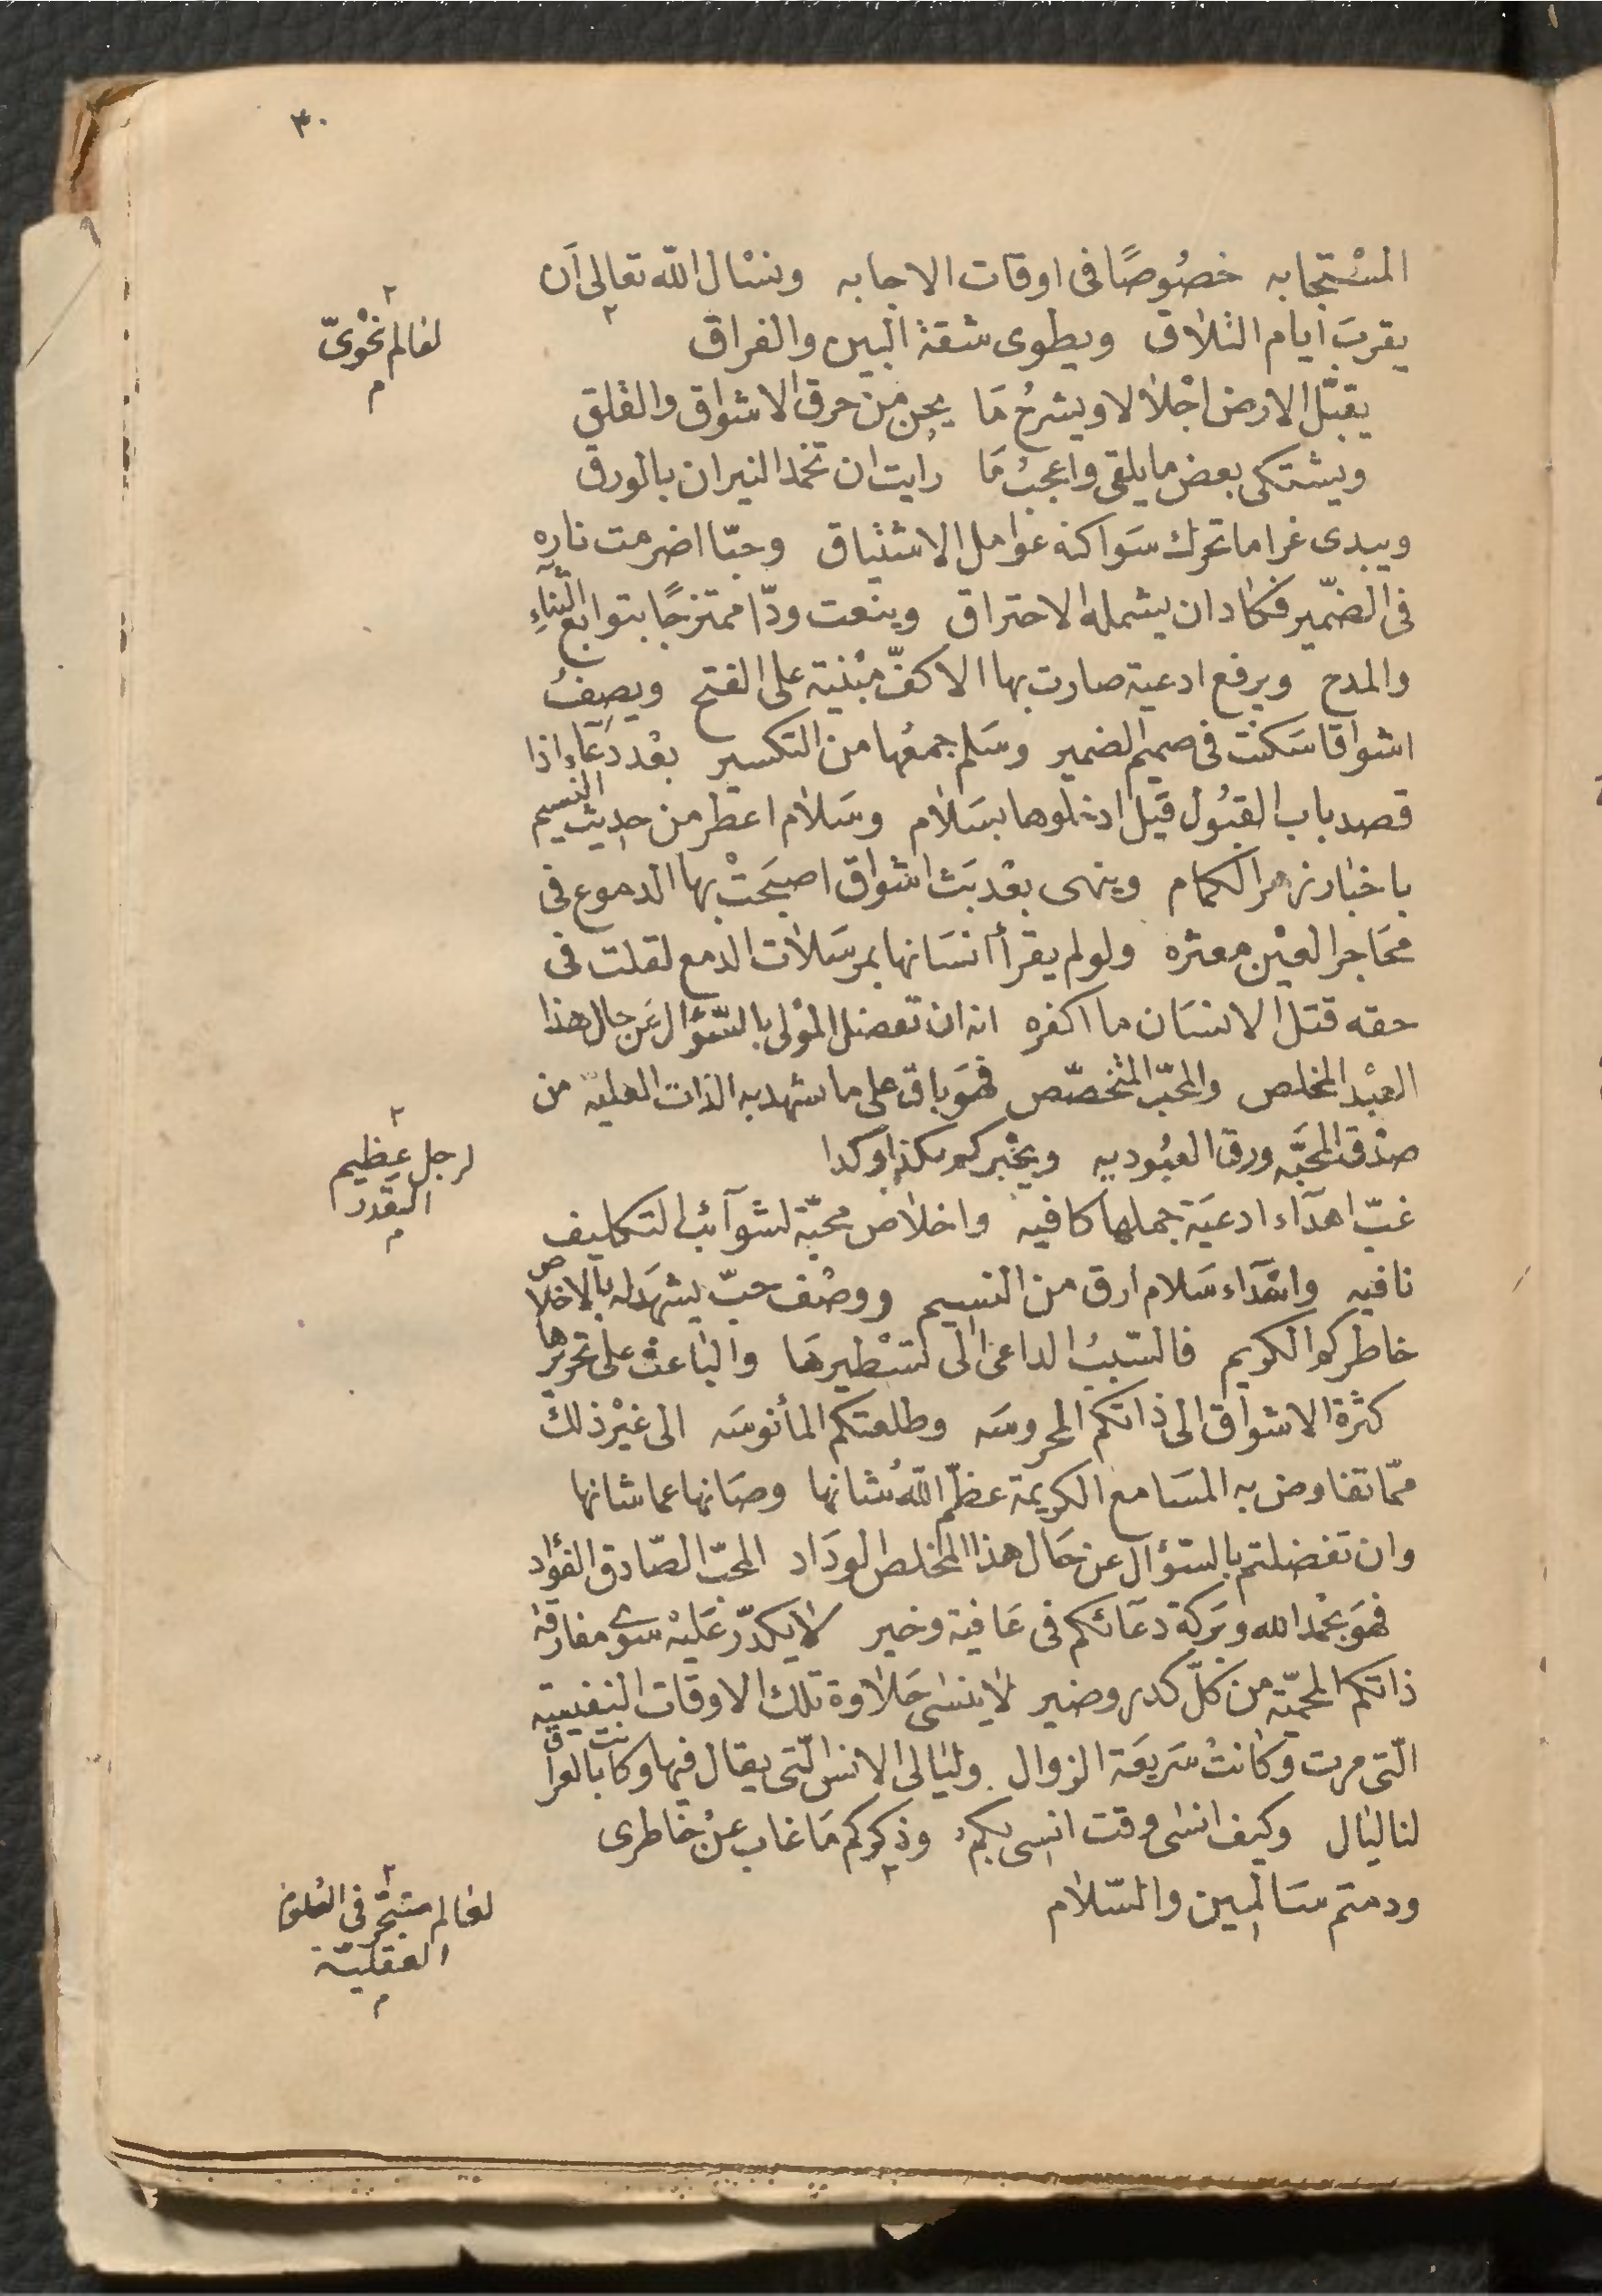 ٣٠
المسْتجابه خصُوصًا فى اوقات الاجابه ونسْال الله تعالى اَن
يقربَ ايام التلاق ويطوى شقة البين والفراق
لعالم نحْوىّ
يقبّل الارض اجْلالا ويشرحُ مَا يجن من حرق الاشواق والقلق
ويشتكى بعض ما يلقى واعجبُ مَا رايت ان تخمد النيران بالورق
ويبدى غراما تحرك سَواكنه عوامل الاشتياق وحبّا اضرمت ناره
فى الضّمير فكاد ان يشمله الاحتراق وينعت ودّا ممتزجًا بتوابع الثناءِ
والمدح ويرفع ادعية صارت بها الاكفّ مبْنية على الفتح ويصِفُ
اشواقا سَكنت فى صميم الضمير وسَلم جمعُها من التكسير بعْد دعَآء اذا
قصد باب القبُول قيل ادخلوها بسَلام وسَلام اعطر من حديث النسيم
باخبار زهر الكمام وينهى بعْد بَث اشواق اصبَحَتْ بها الدموع فى
محَاجر العيْن معثره ولو لم يقرأ انسَانها بمرسَلات الدمع لقلت فى
حقه قتل الانسَان ما اكفره انه ان تفضل الموْلى بالسّؤال عَن حال هذا
العبْد المخلص والمحبّ المتخصّص فهَو باق على ما شهد به الذات العليّه من
صدْق المحَبّه ورق العبُوديه ويخْبركم بكذا وكدا
لرجل عظيم
القدر
غبّ اهدآء ادعيَة جملها كافيه واخلاص محبّة لشوآئب التكليف
نافيه واهْدَآء سَلام ارق من النسيم ووصْف حبّ يشهَد له بالاخلاص
خاطركم الكريم فالسّببُ الداعى الى تسْطيرهَا والبَاعث على تحريرها
كثرة الاشواق الى ذاتكم المحروسَه وطلعتكم المأنوسَه الى غيْر ذلك
ممّا تفاوض به المسَامع الكريمة عظّم اللهُ شانها وصَانها عما شانها
وان تفضلتم بالسّؤال عن حَال هذا المخلص الودَاد المحبّ الصّادق الفؤاد
فهَو بحْمد الله وبَركة دعَائكم فى عَافية وخير لايكدّر عَليْه سوى مفارقة
ذاتكم المحميّة من كلّ كدر وضير لاينسَى حَلاوة تلك الاوقات النفيسه
الّتى مرت وكانتْ سَريعَة الزوال وليَالى الانس الّتى يقال فيها وكانت بالعراق
لنا ليَال وكيف انسَى وقت انسى بكمُ وذكركم مَا غاب عنْ خاطرى
ودمتم سَالمين والسّلام
لعَالم متبحّر فى العُلوم
العقليّة